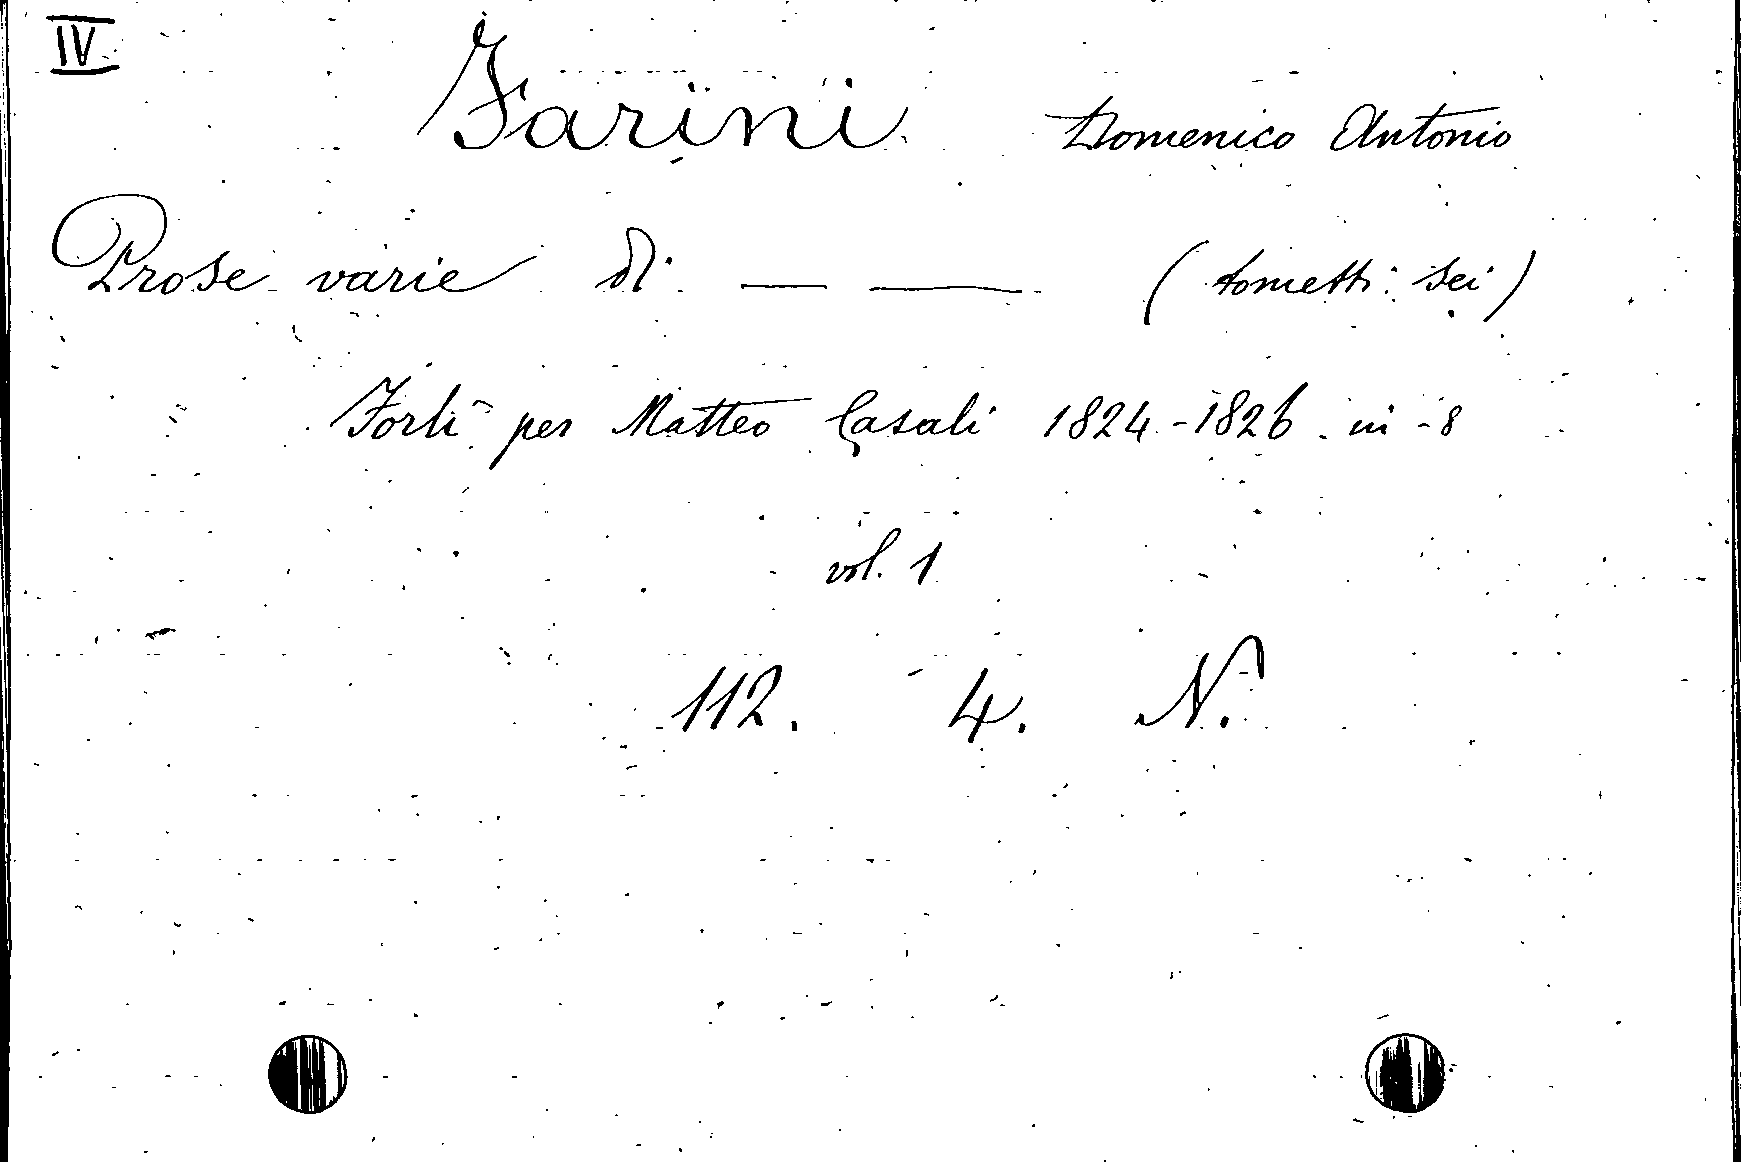 IV
Farini Domenico Antonio
Prose varie di — — (tometti sei)
Forlì per Matteo Casali 1824-1826 in-8
vol. 1
112. 4. N.